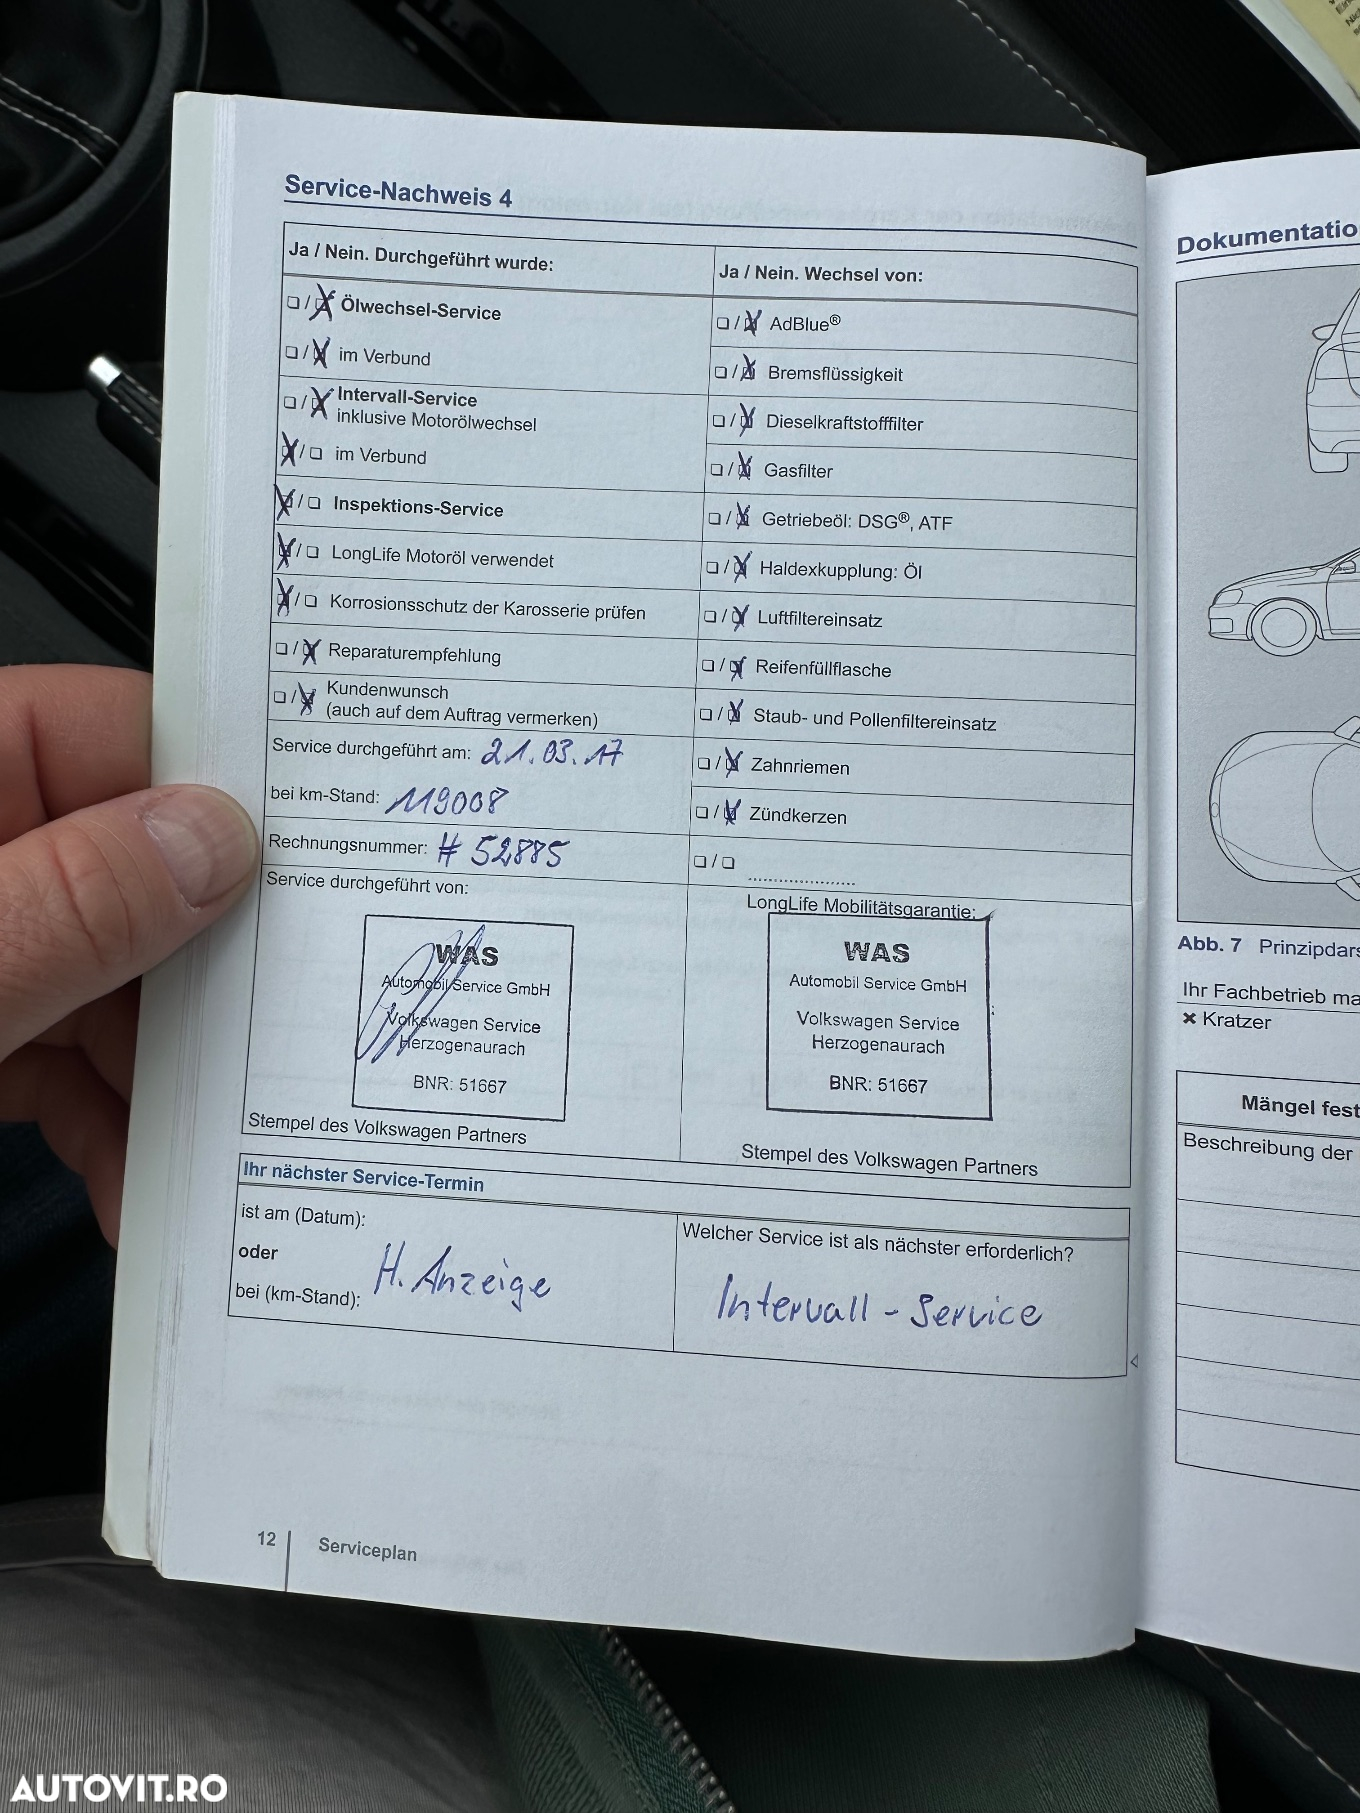 Service-Nachweis 4
Ja / Nein. Durchgeführt wurde:
❏ / ❏ Ölwechsel-Service
❏ / ❏ im Verbund
❏ / ❏ Intervall-Service
inklusive Motorölwechsel
❏ / ❏ im Verbund
❏ / ❏ Inspektions-Service
❏ / ❏ LongLife Motoröl verwendet
❏ / ❏ Korrosionsschutz der Karosserie prüfen
❏ / ❏ Reparaturempfehlung
❏ / ❏ Kundenwunsch
(auch auf dem Auftrag vermerken)
Service durchgeführt am: 21.03.17
bei km-Stand: 119008
Rechnungsnummer: # 52885
Service durchgeführt von:
WAS
Automobil Service GmbH
Volkswagen Service
Herzogenaurach
BNR: 51667
Stempel des Volkswagen Partners
Ja / Nein. Wechsel von:
❏ / ❏ AdBlue®
❏ / ❏ Bremsflüssigkeit
❏ / ❏ Dieselkraftstofffilter
❏ / ❏ Gasfilter
❏ / ❏ Getriebeöl: DSG®, ATF
❏ / ❏ Haldexkupplung: Öl
❏ / ❏ Luftfiltereinsatz
❏ / ❏ Reifenfüllflasche
❏ / ❏ Staub- und Pollenfiltereinsatz
❏ / ❏ Zahnriemen
❏ / ❏ Zündkerzen
❏ / ❏ ......................
LongLife Mobilitätsgarantie:
WAS
Automobil Service GmbH
Volkswagen Service
Herzogenaurach
BNR: 51667
Stempel des Volkswagen Partners
Ihr nächster Service-Termin
ist am (Datum):
oder
bei (km-Stand):
H. Anzeige
Welcher Service ist als nächster erforderlich?
Intervall - Service
12
Serviceplan
Dokumentatio
Abb. 7 Prinzipdars
Ihr Fachbetrieb ma
✖ Kratzer
Mängel fest
Beschreibung der
AUTOVIT.RO